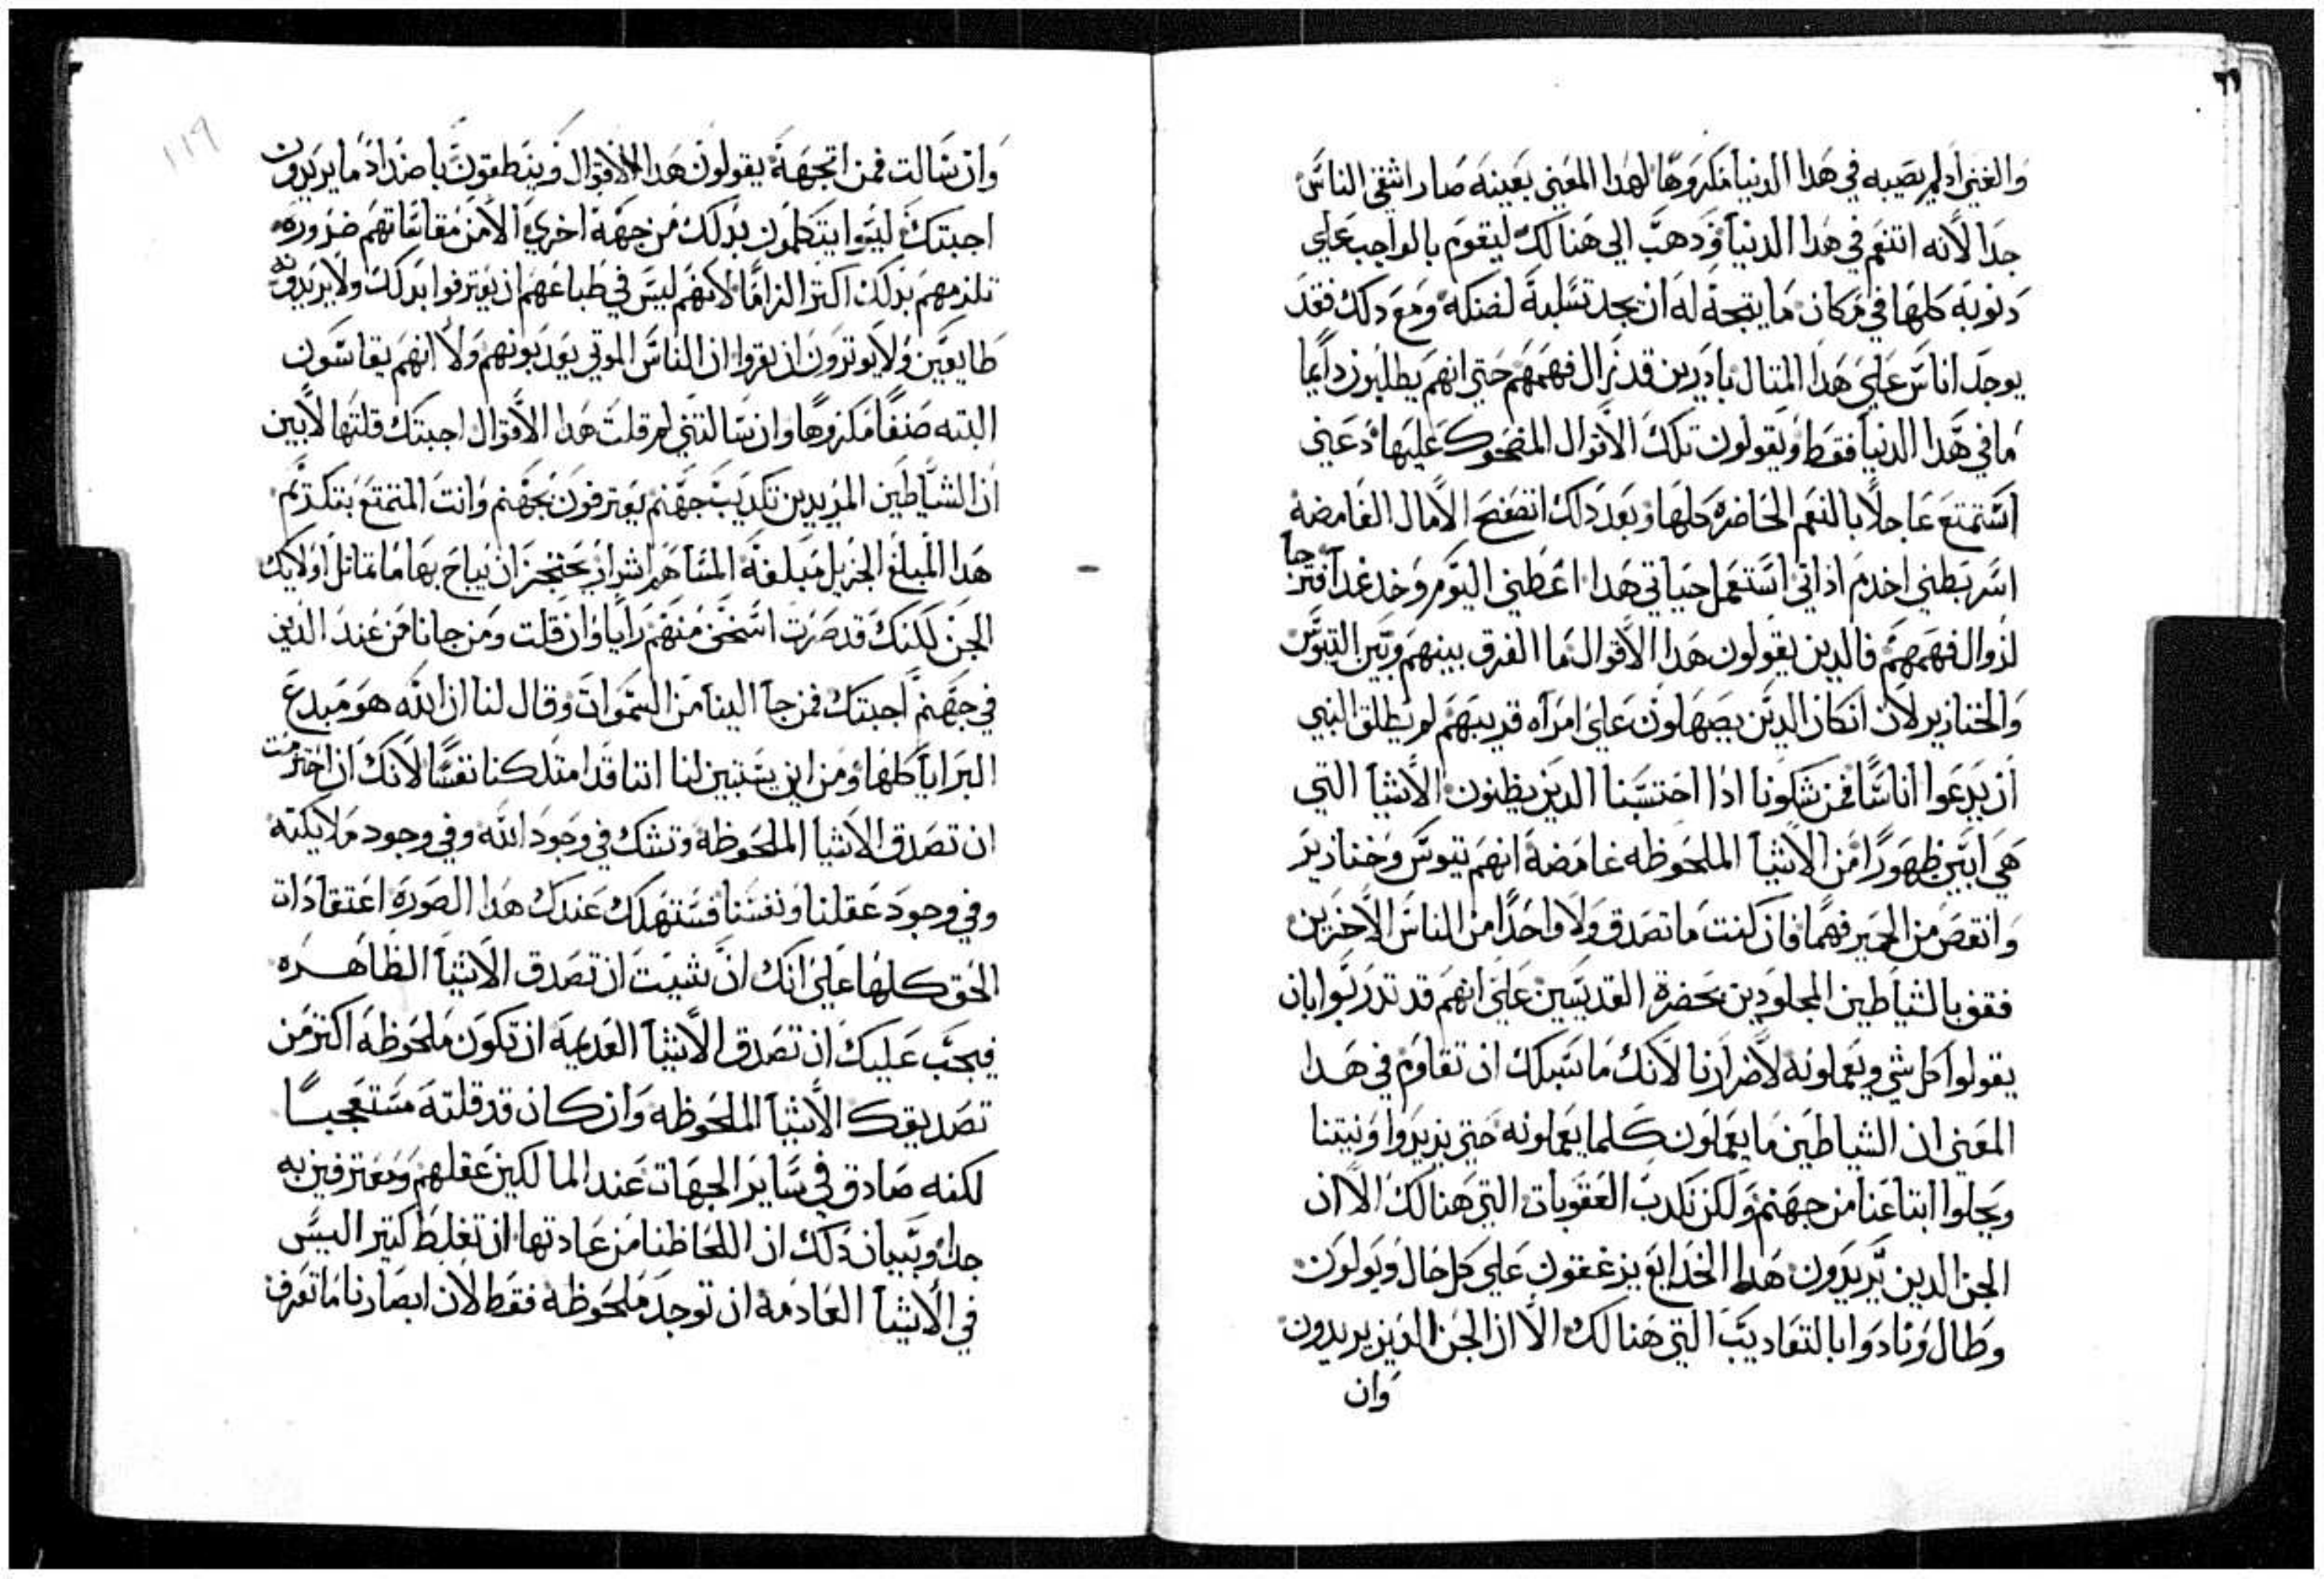 والغني ادلم يصيبه في هدا الدنيا مكروها لهدا المعني بعينه صار اشقي الناس
جدا لانه اتنعم في هدا الدنيا ودهب الي هنالك ليقوم بالواجب علي
دنوبه كلها في مكان ما يتجه له ان يجد تسلية لضنكه ومع دلك فقد
يوجد اناس علي هدا المتال بادرين قد زال فهمهم حتي انهم يطلبون دايما
ما في هدا الدنيا فقط ويقولون تلك الاقوال المضحوك عليها دعني
استمتع عاجلا بالنعم الحاضره كلها وبعد دلك اتصفح الامال الغامضه
اسر بطني اخدم اداتي استعمل حياتي هدا اعطني اليوم وخد غدا فترجا
لزوال فهمهم فالدين يقولون هدا الاقوال ما الفرق بينهم وبين التيوس
والخنازير لان انكان الدين يصهلون علي امراه قريبهم لم يطلق النبي
ان يدعوا اناسا فمن يشكونا ادا احتسبنا الدين يظنون الاشيا التي
هي ابين ظهورا من الاشيا الملحوظه غامضة انهم تيوس وخنازير
وانقص من الحمير فهما فان كنت ما تصدق ولا واحدا من الناس الاخرين
فقف بالشياطين المجلودين بحضرة القديسين علي انهم قد تدربوا بان
يقولوا كل شي ويعملونه لاضرارنا لانك ما يسبلك ان تقاوم في هدا
المعني ان الشياطين ما يعملون كلما يعملونه حتي يزيدوا ونيتنا
ويحلوا ابتاعنا من جهنم ولكن تكدب العقوبات التي هنالك الا ان
الجن الدين يريدون هدا الخدايع يزعقون علي كل حال ويولون
وطال ونادوا بالتعاديب التي هنالك الا ان الجن الدين يريدون
وان
١١٩
وان سالت فمن اتجهة يقولون هدا الاقوال وينطقون باضداد ما يريدون
اجبتك ليسوا يتكلمون بدلك من جهة اخري الا من مقاساتهم ضروره
تلزمهم بدلك اكتر الزاما لانهم ليس في طباعهم ان يعترفوا بدلك ولا يريدونه
طايعين ولا يوترون ان يقروا ان الناس الموتي يعدبونهم ولا انهم يقاسون
البته صنفا مكروها وان سالتني لم قلت هدا الاقوال اجبتك قلتها لابين
ان الشياطين المريدين تكديب جهنم يعترفون بجهنم وانت المتمتع بتكرم
هدا المبلغ الجزيل مبلغه المساهم اسرار يحتجز ان يباح بها ما تماتل اولايك
الجن لكنك قد صرت اسخف منهم رايا وان قلت ومن جانا من عند الدين
في جهنم اجبتك فمن جا الينا من السموات وقال لنا ان الله هو مبدع
البرايا كلها ومن اين يستبين لنا اننا قد امتلكنا نفسا لانك ان اخترمت
ان تصدق الاشيا الملحوظة وتشك في وجود الله وفي وجود ملايكته
وفي وجود عقلنا ونفسنا فستهلك عندك هدا الصورة اعتقادات
الحق كلها علي انك ان شيت ان تصدق الاشيا الظاهره
فيجب عليك ان تصدق الاشيا العديمة ان تكون ملحوظة اكتر من
تصديقك الاشيا الملحوظه وان كان قد قلته مستعجبا
لكنه صادق في ساير الجهات عند المالكين عقلهم ومعترفين به
جدا وتبيان دلك ان اللحاظنا من عادتها ان تغلط كتير اليس
في الاشيا العادمة ان توجد ملحوظة فقط لان ابصارنا ما تعرف